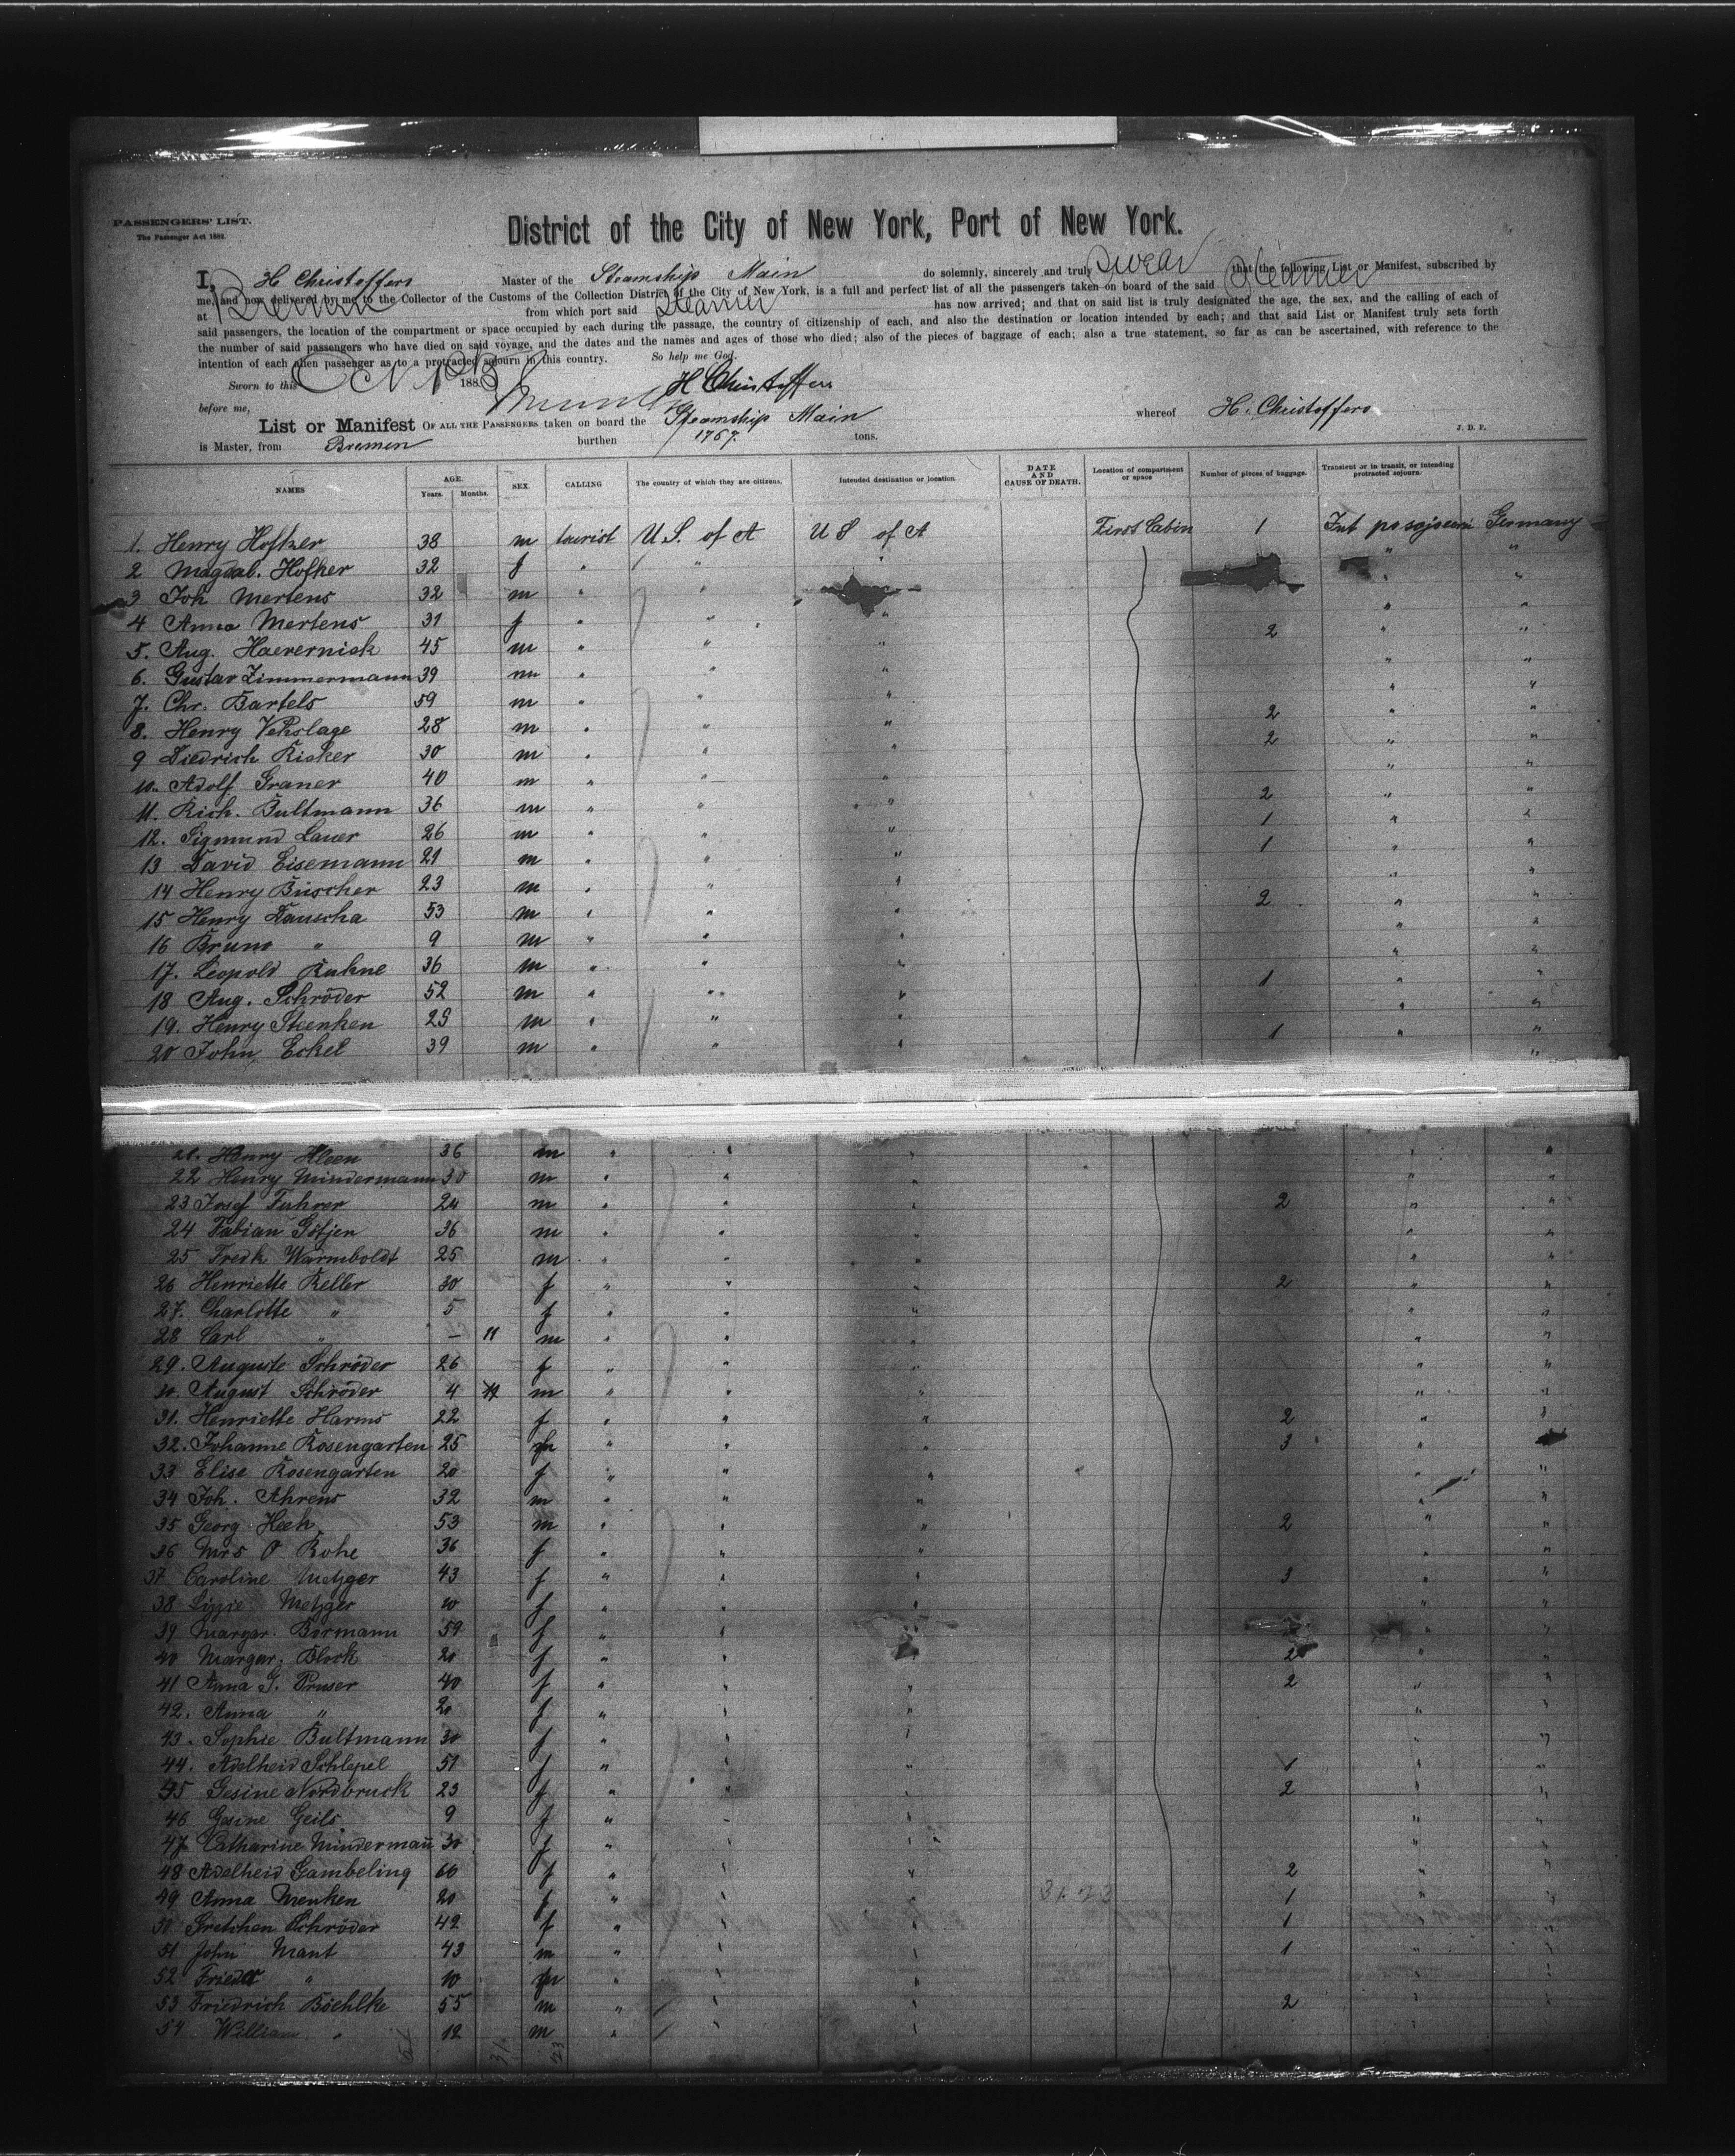 PASSENGERS' LIST.
The Passenger Act 1882.
District of the City of New York, Port of New York.
I, H Christoffers Master of the Steamship Main do solemnly, sincerely and truly swear that the following List or Manifest, subscribed by
me, and now delivered by me to the Collector of the Customs of the Collection District of the City of New York, is a full and perfect list of all the passengers taken on board of the said Steamer
at Bremen from which port said Steamer has now arrived; and that on said list is truly designated the age, the sex, and the calling of each of
said passengers, the location of the compartment or space occupied by each during the passage, the country of citizenship of each, and also the destination or location intended by each; and that said List or Manifest truly sets forth
the number of said passengers who have died on said voyage, and the dates and the names and ages of those who died; also of the pieces of baggage of each; also a true statement, so far as can be ascertained, with reference to the
intention of each alien passenger as to a protracted sojourn in this country. So help me God.
Sworn to this 188 H Christoffers
before me,
List or Manifest OF ALL THE PASSENGERS taken on board the Steamship Main whereof H. Christoffers
is Master, from Bremen burthen 1767. tons. J. D. P.
NAMES AGE. Years. Months. SEX. CALLING The country of which they are citizens. Intended destination or location DATE AND CAUSE OF DEATH. Location of compartment or space Number of pieces of baggage. Transient or in transit, or intending protracted sojourn.
1. Henry Hofker 38 m tourist U.S. of A U S of A First Cabin 1 Int Germany
2 Magdal. Hofker 32 f " " " " "
3 Joh Mertens 32 m " " " "
4 Anna Mertens 31 f " " " " "
5. Aug. Haevernick 45 m " " " 2 " "
6. Gustav Zimmermann 39 m " " " " "
7. Chr. Bartels 59 m " " " " "
8. Henry Vehslage 28 m " " " 2 " "
9 Diedrich Risker 30 m " " " 2 " "
10. Adolf Graner 40 m " " " " "
11. Rich. Bultmann 36 m " " " 2 " "
12. Sigmund Lauer 26 m " " " 1 " "
13 David Eisemann 21 m " " " 1 " "
14 Henry Büscher 23 m " " " " "
15 Henry Dauscha 53 m " " " 2 " "
16 Bruno " 9 m " " " " "
17. Leopold Kuhne 36 m " " " " "
18 Aug. Schröder 52 m " " " 1 " "
19. Henry Steenken 25 m " " " " "
20 John Eckel 39 m " " " 1 " "
21. Henry Kleen 36 m " " " " "
22 Henry Mindermann 30 m " " " " "
23 Josef Fuhrer 24 m " " " 2 " "
24 Fabian Götjen 36 m " " " "
25 Fredk Warmboldt 25 m " " " " "
26 Henriette Keller 30 f " " " 2 " "
27. Charlotte " 5 f " " " " "
28 Carl " — 11 m " " " " "
29. Auguste Schröder 26 f " " " " "
30. August Schröder 4 m " " " " "
31. Henriette Harms 22 f " " " 2 " "
32. Johanne Rosengarten 25 f " " " 3 "
33 Elise Rosengarten 20 f " " " " "
34 Joh. Ahrens 32 m " " " " "
35 Georg Heeh 53 m " " " 2 " "
36 Mrs O Rohe 36 f " " " " "
37 Caroline Metzger 43 f " " " 3 " "
38 Lizzie Metzger 10 f " " " " "
39 Margar. Bormann 59 f " " " "
40 Margar. Block 20 f " " " 2 " "
41 Anna G. Pruser 40 f " " " 2 " "
42. Anna " 20 f " " " " "
43. Sophie Bultmann 30 f " " " "
44. Adelheid Schlepel 51 f " " " 1 " "
45 Gesine Nordbruck 23 f " " " 2 " "
46 Gesine Geils 9 f " " " " "
47 Catharine Mindermann 30 f " " " " "
48 Adelheid Gambeling 60 f " " " 2 " "
49 Anna Menken 20 f " " " 1 " "
50 Gretchen Schröder 42 f " " " 1 " "
51 John Mant 43 m " " " 1 " "
52 Frieda " 10 f " " " " "
53 Friedrich Böehlke 55 m " " " 2 " "
54 William " 12 m " " " " "
31 23